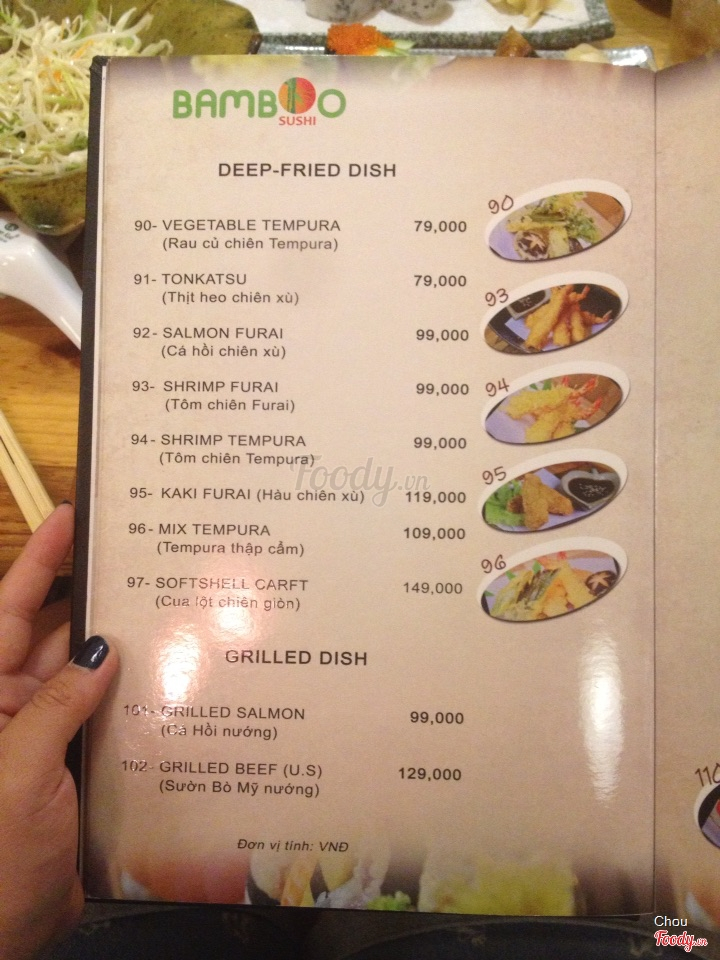 BAMBOO
SUSHI
DEEP-FRIED DISH
90- VEGETABLE TEMPURA 79,000
(Rau củ chiên Tempura)
91- TONKATSU 79,000
(Thịt heo chiên xù)
92- SALMON FURAI 99,000
(Cá hồi chiên xù)
93- SHRIMP FURAI 99,000
(Tôm chiên Furai)
94- SHRIMP TEMPURA 99,000
(Tôm chiên Tempura)
95- KAKI FURAI (Hàu chiên xù) 119,000
96- MIX TEMPURA 109,000
(Tempura thập cẩm)
97- SOFTSHELL CARFT 149,000
(Cua lột chiên giòn)
90
93
94
95
96
GRILLED DISH
101- GRILLED SALMON 99,000
(Cá Hồi nướng)
102- GRILLED BEEF (U.S) 129,000
(Sườn Bò Mỹ nướng)
Đơn vị tính: VNĐ
110
Foody.vn
Chou
Foody.vn